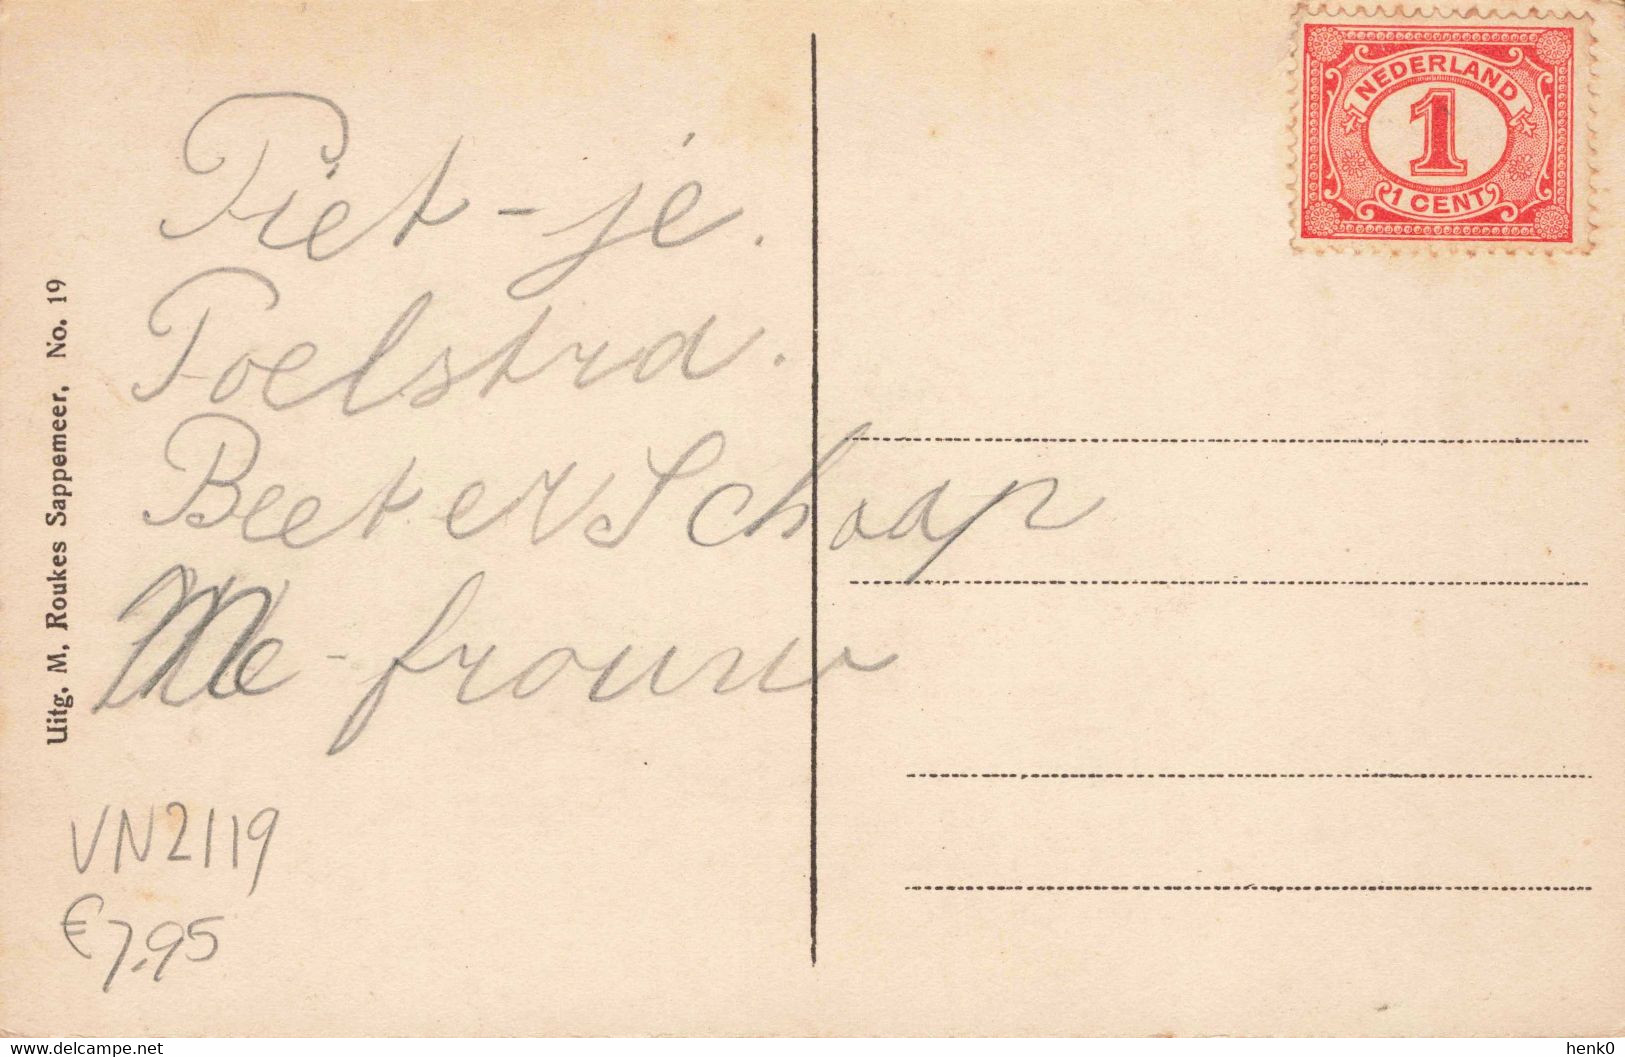 Piet-je.
Poelstra.
Beeter Schaap
Me-frouw
Uitg. M. Roukes Sappemeer, No. 19
VN2119
€7,95
NEDERLAND
1
1 CENT
www.delcampe.net
henk0